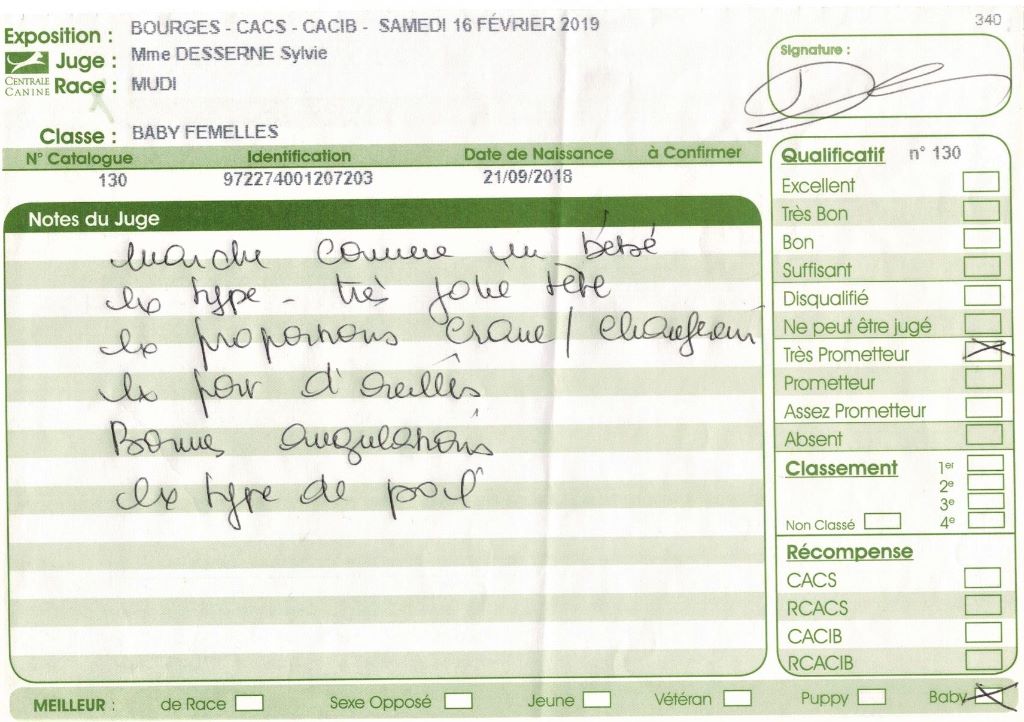 Exposition : BOURGES - CACS - CACIB - SAMEDI 16 FÉVRIER 2019
340
CENTRALE CANINE
Juge : Mme DESSERNE Sylvie
Race : MUDI
Classe : BABY FEMELLES
Signature :
N° Catalogue Identification Date de Naissance à Confirmer
130 972274001207203 21/09/2018
Notes du Juge
marche comme un bébé
ex type - très jolie tête
ex proportions crane / chanfrein
ex port d'oreilles
Bonnes angulations
ex type de poil
Qualificatif n° 130
Excellent
Très Bon
Bon
Suffisant
Disqualifié
Ne peut être jugé
Très Prometteur
Prometteur
Assez Prometteur
Absent
Classement 1er
2e
3e
Non Classé 4e
Récompense
CACS
RCACS
CACIB
RCACIB
MEILLEUR : de Race Sexe Opposé Jeune Vétéran Puppy Baby